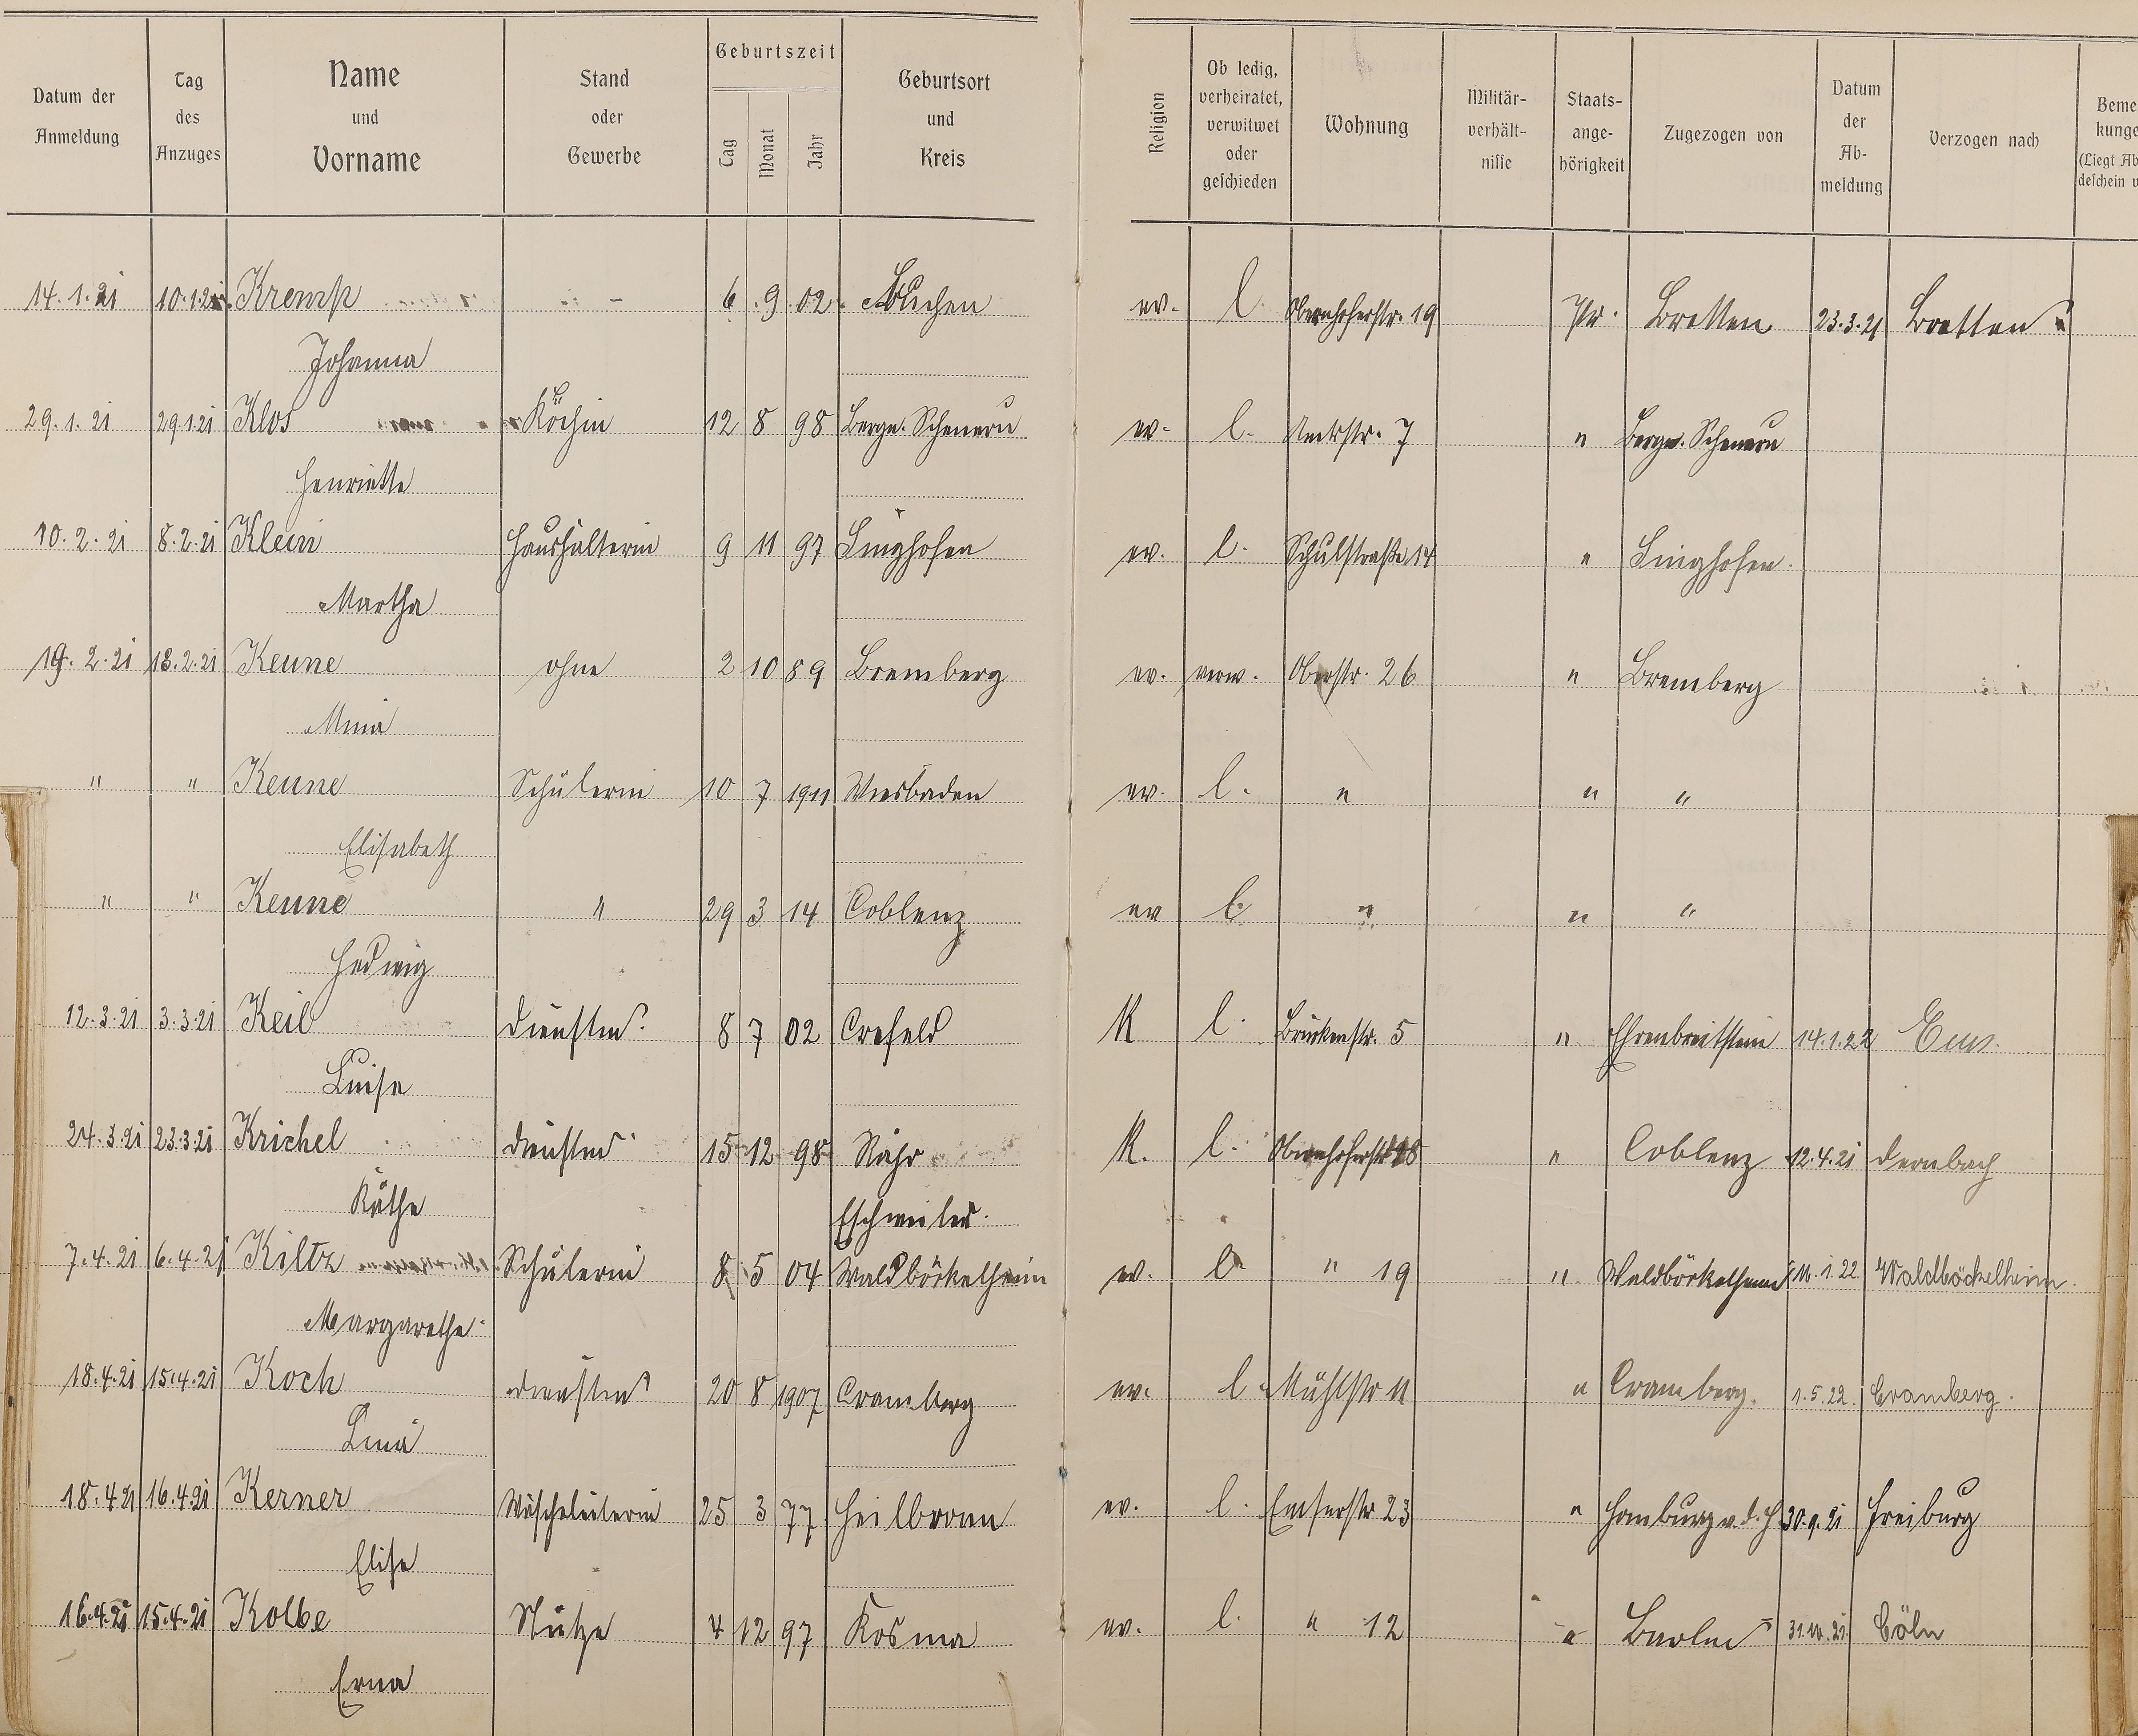 Datum der Anmeldung
Tag des Anzuges
Name und Vorname
Stand oder Gewerbe
Geburtszeit
Tag Monat Jahr
Geburtsort und Kreis
Religion
Ob ledig, verheiratet, verwitwet oder geschieden
Wohnung
Militär-verhält-nisse
Staats-ange-hörigkeit
Zugezogen von
Datum der Ab-meldung
Verzogen nach
Beme
kunge
(Liegt Ab
deschein v
14.1.21 10.1.21. Kremp - 6 9 02 ev. l. Obernhoferstr. 19 Pr. Bretten 23.3.21 Bretten
Johanna
29.1.21 29.1.21 Klos Köchin 12 8 98 Bergn. Scheuern ev. l. Amtstr. 7 " Bergn. Scheuern
Henriette
10.2.21 8.2.21 Klein Haushälterin 9 11 97 Singhofen ev. l. Schulstraße 14 " Singhofen.
Martha
19.2.21 18.2.21 Keune ohne 2 10 89 Bremberg ev. verw. Oberstr. 26 " Bremberg
Mina
" " Keune Schülerin 10 7 1911 Wiesbaden ev. l. " " "
Elisabeth
" " Keune " 29 3 14 Coblenz ev l. " " "
Hedwig
12.3.21 3.3.21 Keil Dienstm. 8 7 02 Crefeld K l. Brückenstr. 5 " Ehrenbreitstein 14.1.22 Ems.
Luise
24.3.21 23.3.21 Krichel Dienstm. 15 12 98 K. l. Obernhoferstr. 18 " Coblenz 12.4.21 Dernbach
Käthe Eschweiler.
7.4.21 6.4.21 Kiltz Schülerin 8 5 04 Waldböckelheim ev. l. " 19 " Waldböckelheim 1.22 Waldböckelheim.
Margarethe
18.4.21 15.4.21 Koch Dienstm. 20 8 1907 Cramberg ev. l. Mühlstr 11 " Cramberg. 1.5.22. Cramberg.
Lina
18.4.21 16.4.21 Kerner Wäscheleiterin 25 3 77 Heilbronn ev. l. Emserstr 23 " Homburg v. d. H. 30.9.21 Freiburg
Elise
16.4.21 15.4.21 Kolbe Stütze 4 12 97 Kosma ev. l. " 12 " Berlin 31.10.21. Cöln
Erna